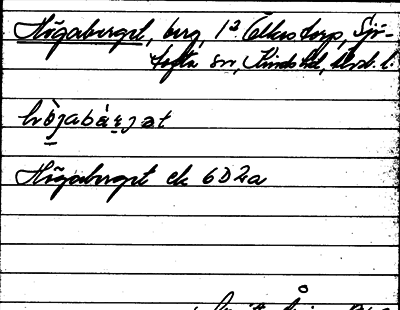 Högaberget, berg, 1² Älkastorp, Sjö-
tofta sn, Kinds hd, Älvsb. l.
hö̀jabàrjət
Högaberget ek 6D2a